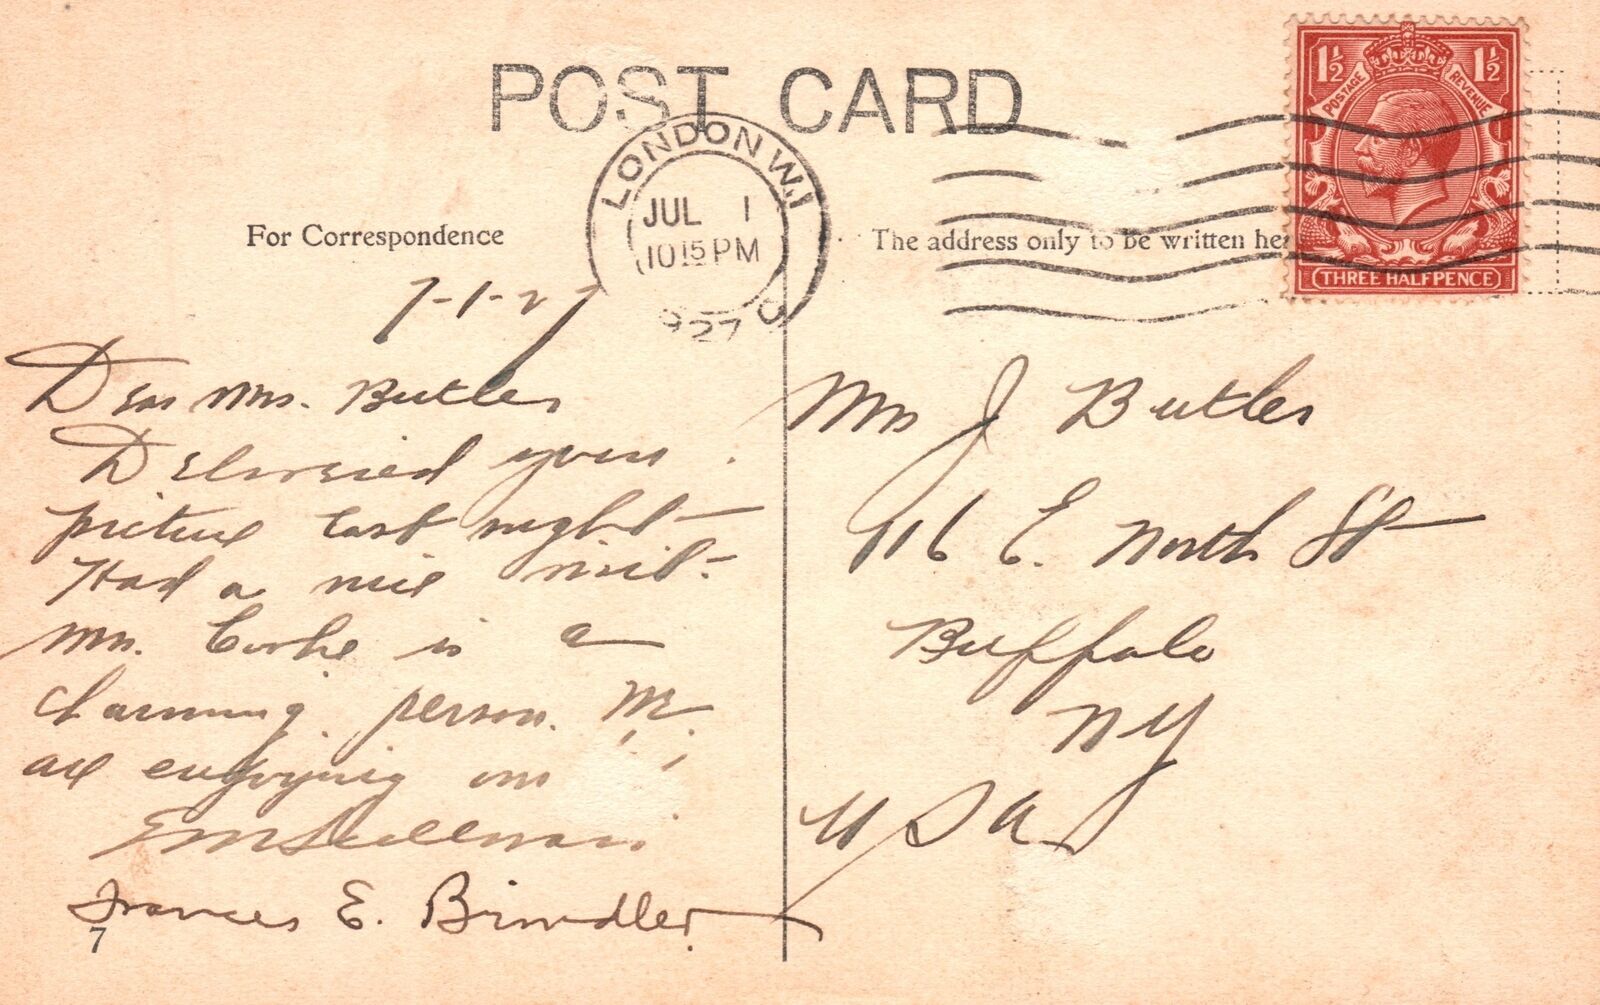 POST CARD
LONDON W.1
JUL 1
10 15 PM
1927
1½ 1½
POSTAGE REVENUE
THREE HALFPENCE
For Correspondence
The address only to be written he
7-1-27
Dear Mrs. Butler
Delivered your
picture last night
Had a nice visit.
Mrs. Cooke is a
charming person.
are enjoying
E M Sullivan
Frances E. Brindler
7
Mrs J Butler
116 E. North St
Buffalo
NY
USA